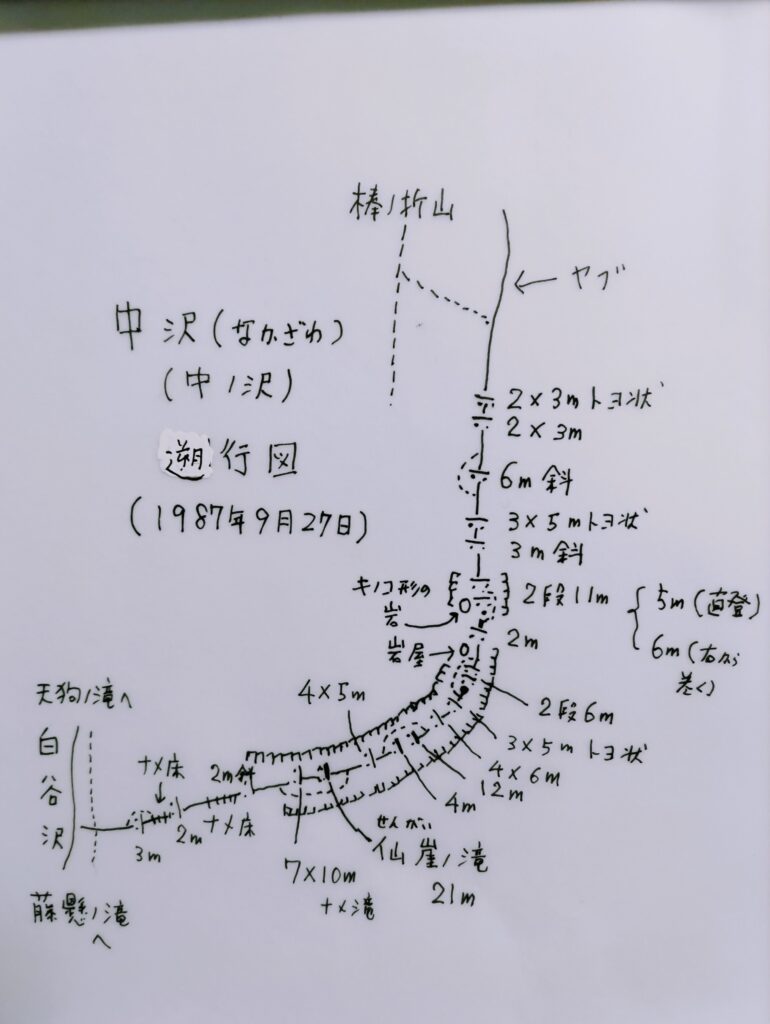 棒ノ折山
ヤブ
中沢(なかざわ)
(中ノ沢)
遡行図
(1987年9月27日)
2×3mトヨ状
2×3m
6m斜
3×5mトヨ状
3m斜
キノコ形の
岩
2段11m
5m(直登)
6m(右から
巻く)
2m
岩屋
2段6m
3×5mトヨ状
4×6m
12m
4m
4×5m
せんがい
仙崖ノ滝
21m
7×10m
ナメ滝
2m斜
ナメ床
ナメ床
2m
3m
天狗ノ滝へ
白谷沢
藤懸ノ滝
へ